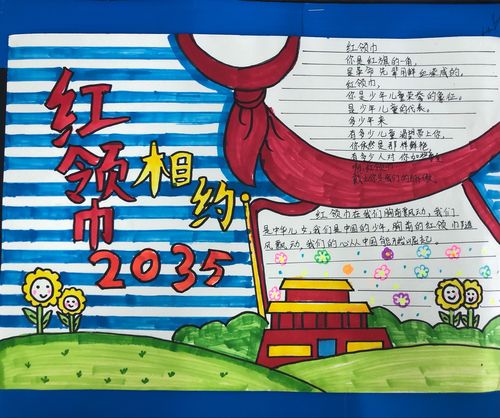 红领巾
相约
2035
红领巾
你是红旗的一角，
是革命先辈用鲜血染成的。
红领巾，
你是少年儿童荣誉的象征。
是少年儿童的代表。
多少年来
有多少儿童渴望带上你，
你依然是那样鲜艳
有多少人对你
红领巾在我们胸前飘动，我们
是中华儿女，我们是中国的少年，胸前的红领巾
风飘动，我们的心从中国